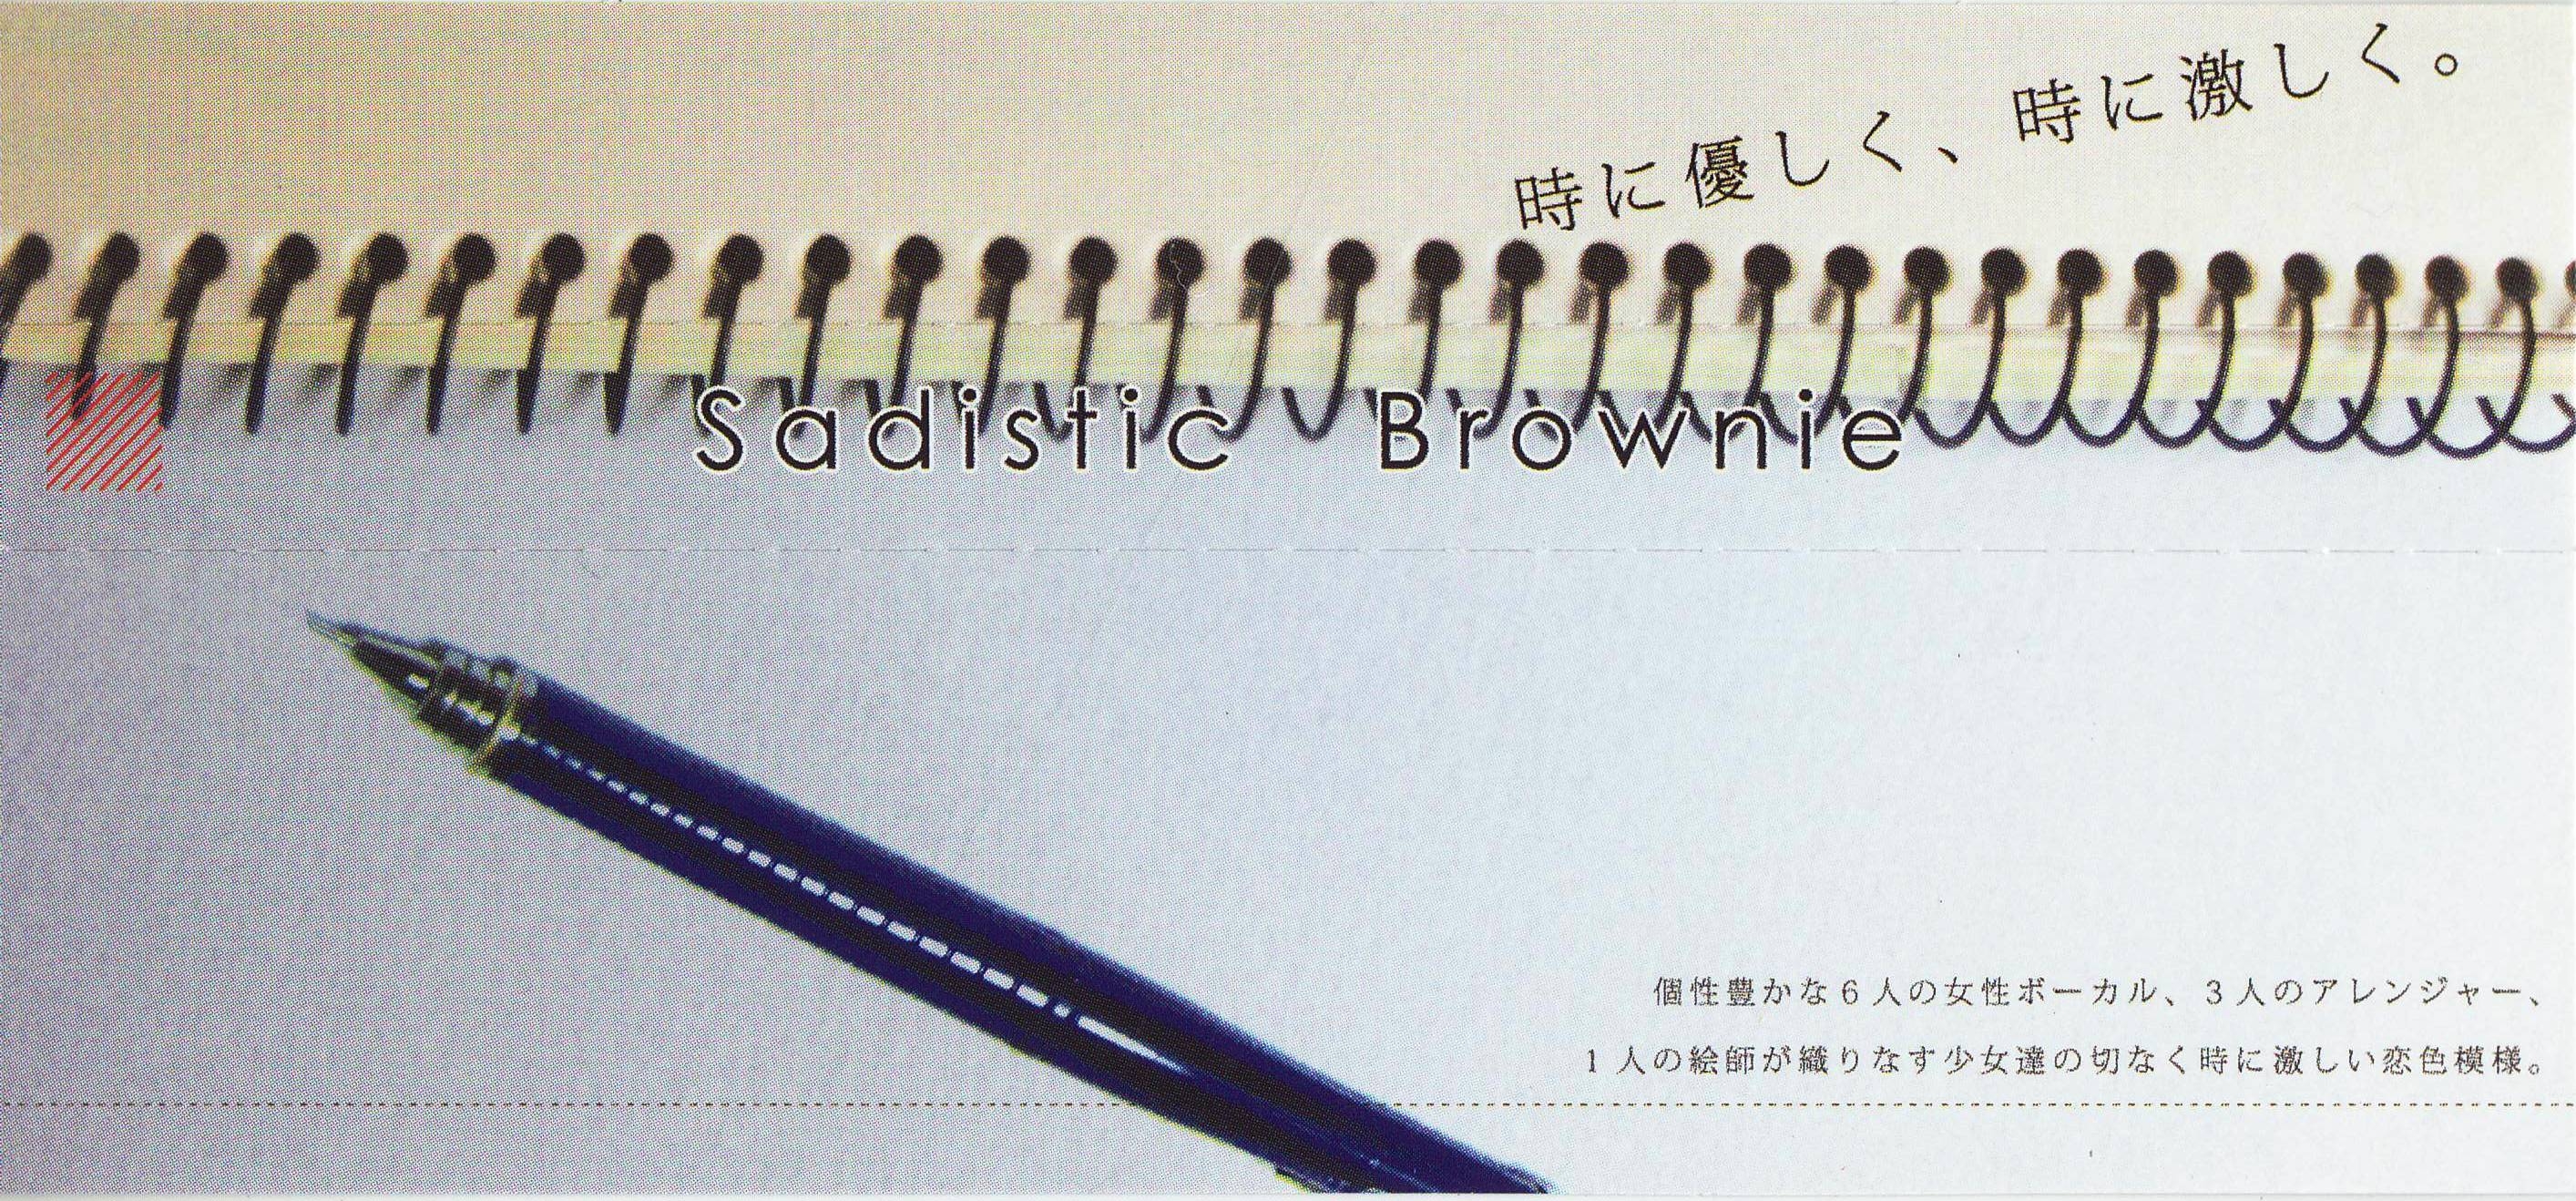 時に優しく、時に激しく。
Sadistic Brownie
個性豊かな6人の女性ボーカル、3人のアレンジャー、
1人の絵師が織りなす少女達の切なく時に激しい恋色模様。